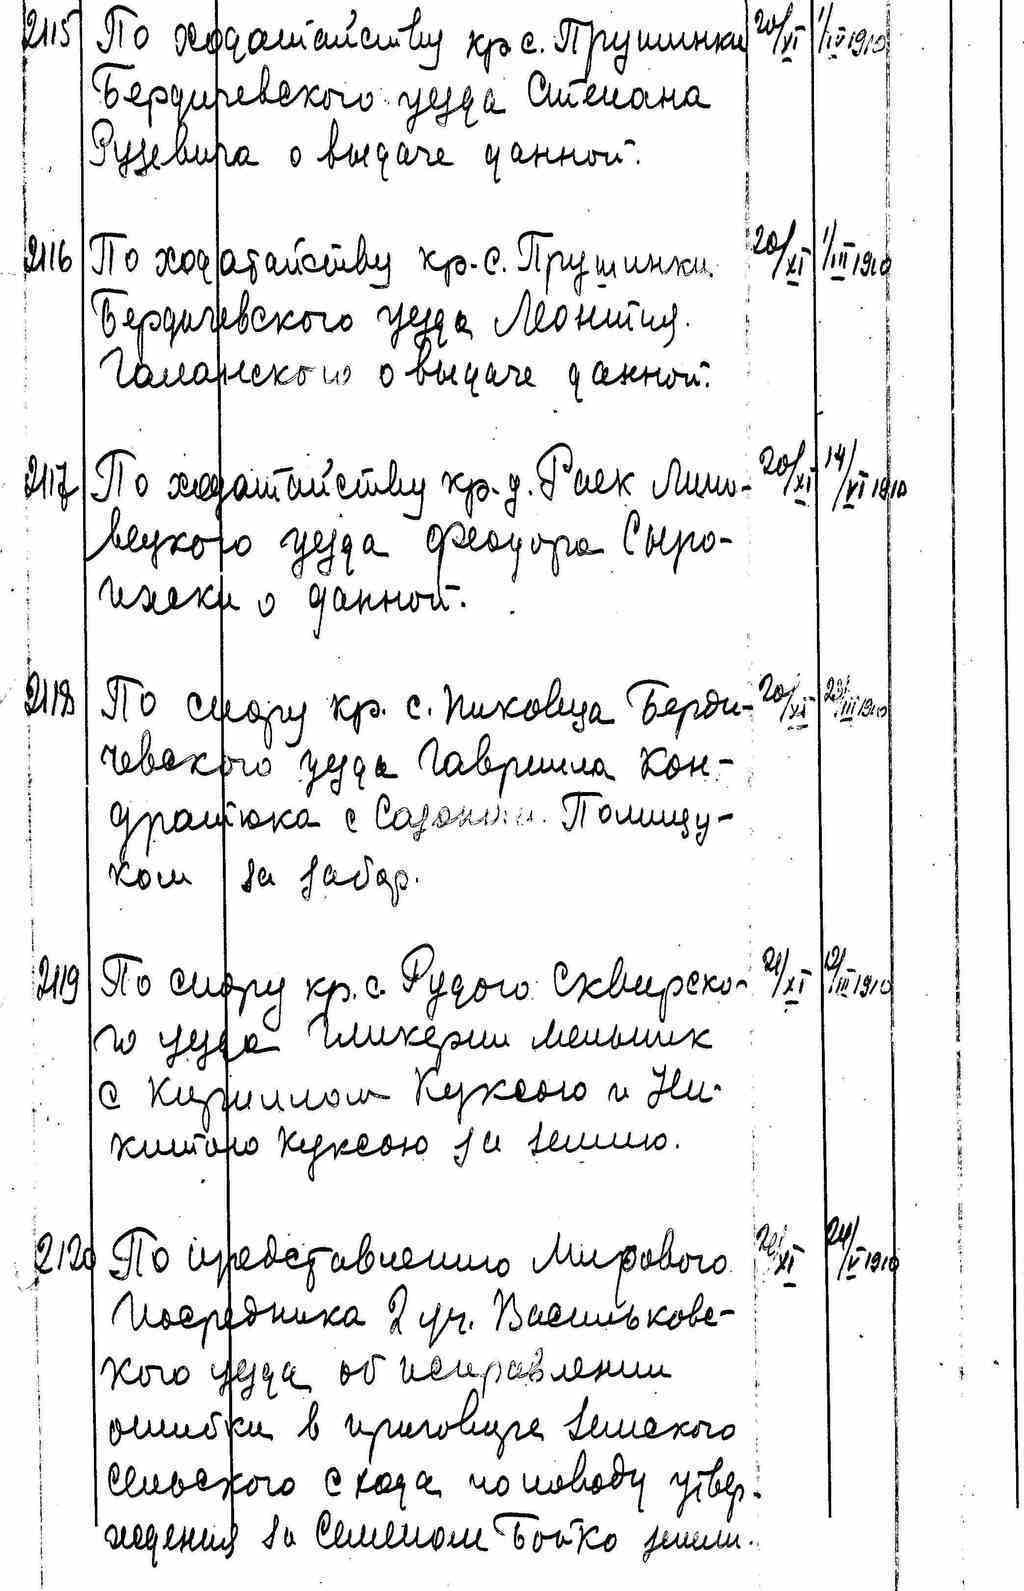 2115 По ходатайству кр. с. Прушинки 20/XI 1/IV 1910
Бердичевского уезда Степана
о выдаче данной.
2116 По ходатайству кр. с. Прушинки 20/XI 1/III 1910
Бердичевского уезда Леонтия
Галанского о выдаче данной.
2117 По ходатайству кр. д. Раек Липо- 20/XI 14/VI 1910
вецкого уезда Феодора Сыро-
ижски о данной.
2118 По спору кр. с. Пиковца Берди- 20/XI 23/III 1910
чевского уезда Гавриила Кон-
дратюка с Полищу-
ком за забор.
2119 По спору кр. с. Рудого Сквирско- 21/XI /III 1910
го уезда Гликерии Мельник
с Кириллом Куксою и Ни-
китою Куксою за землю.
2120 По представлению Мирового /XI 24/V 1910
Посредника 2 уч. Васильковс-
кого уезда об исправлении
ошибки в приговоре
сельского схода по поводу утвер-
ждения за Семеном Бойко земли.